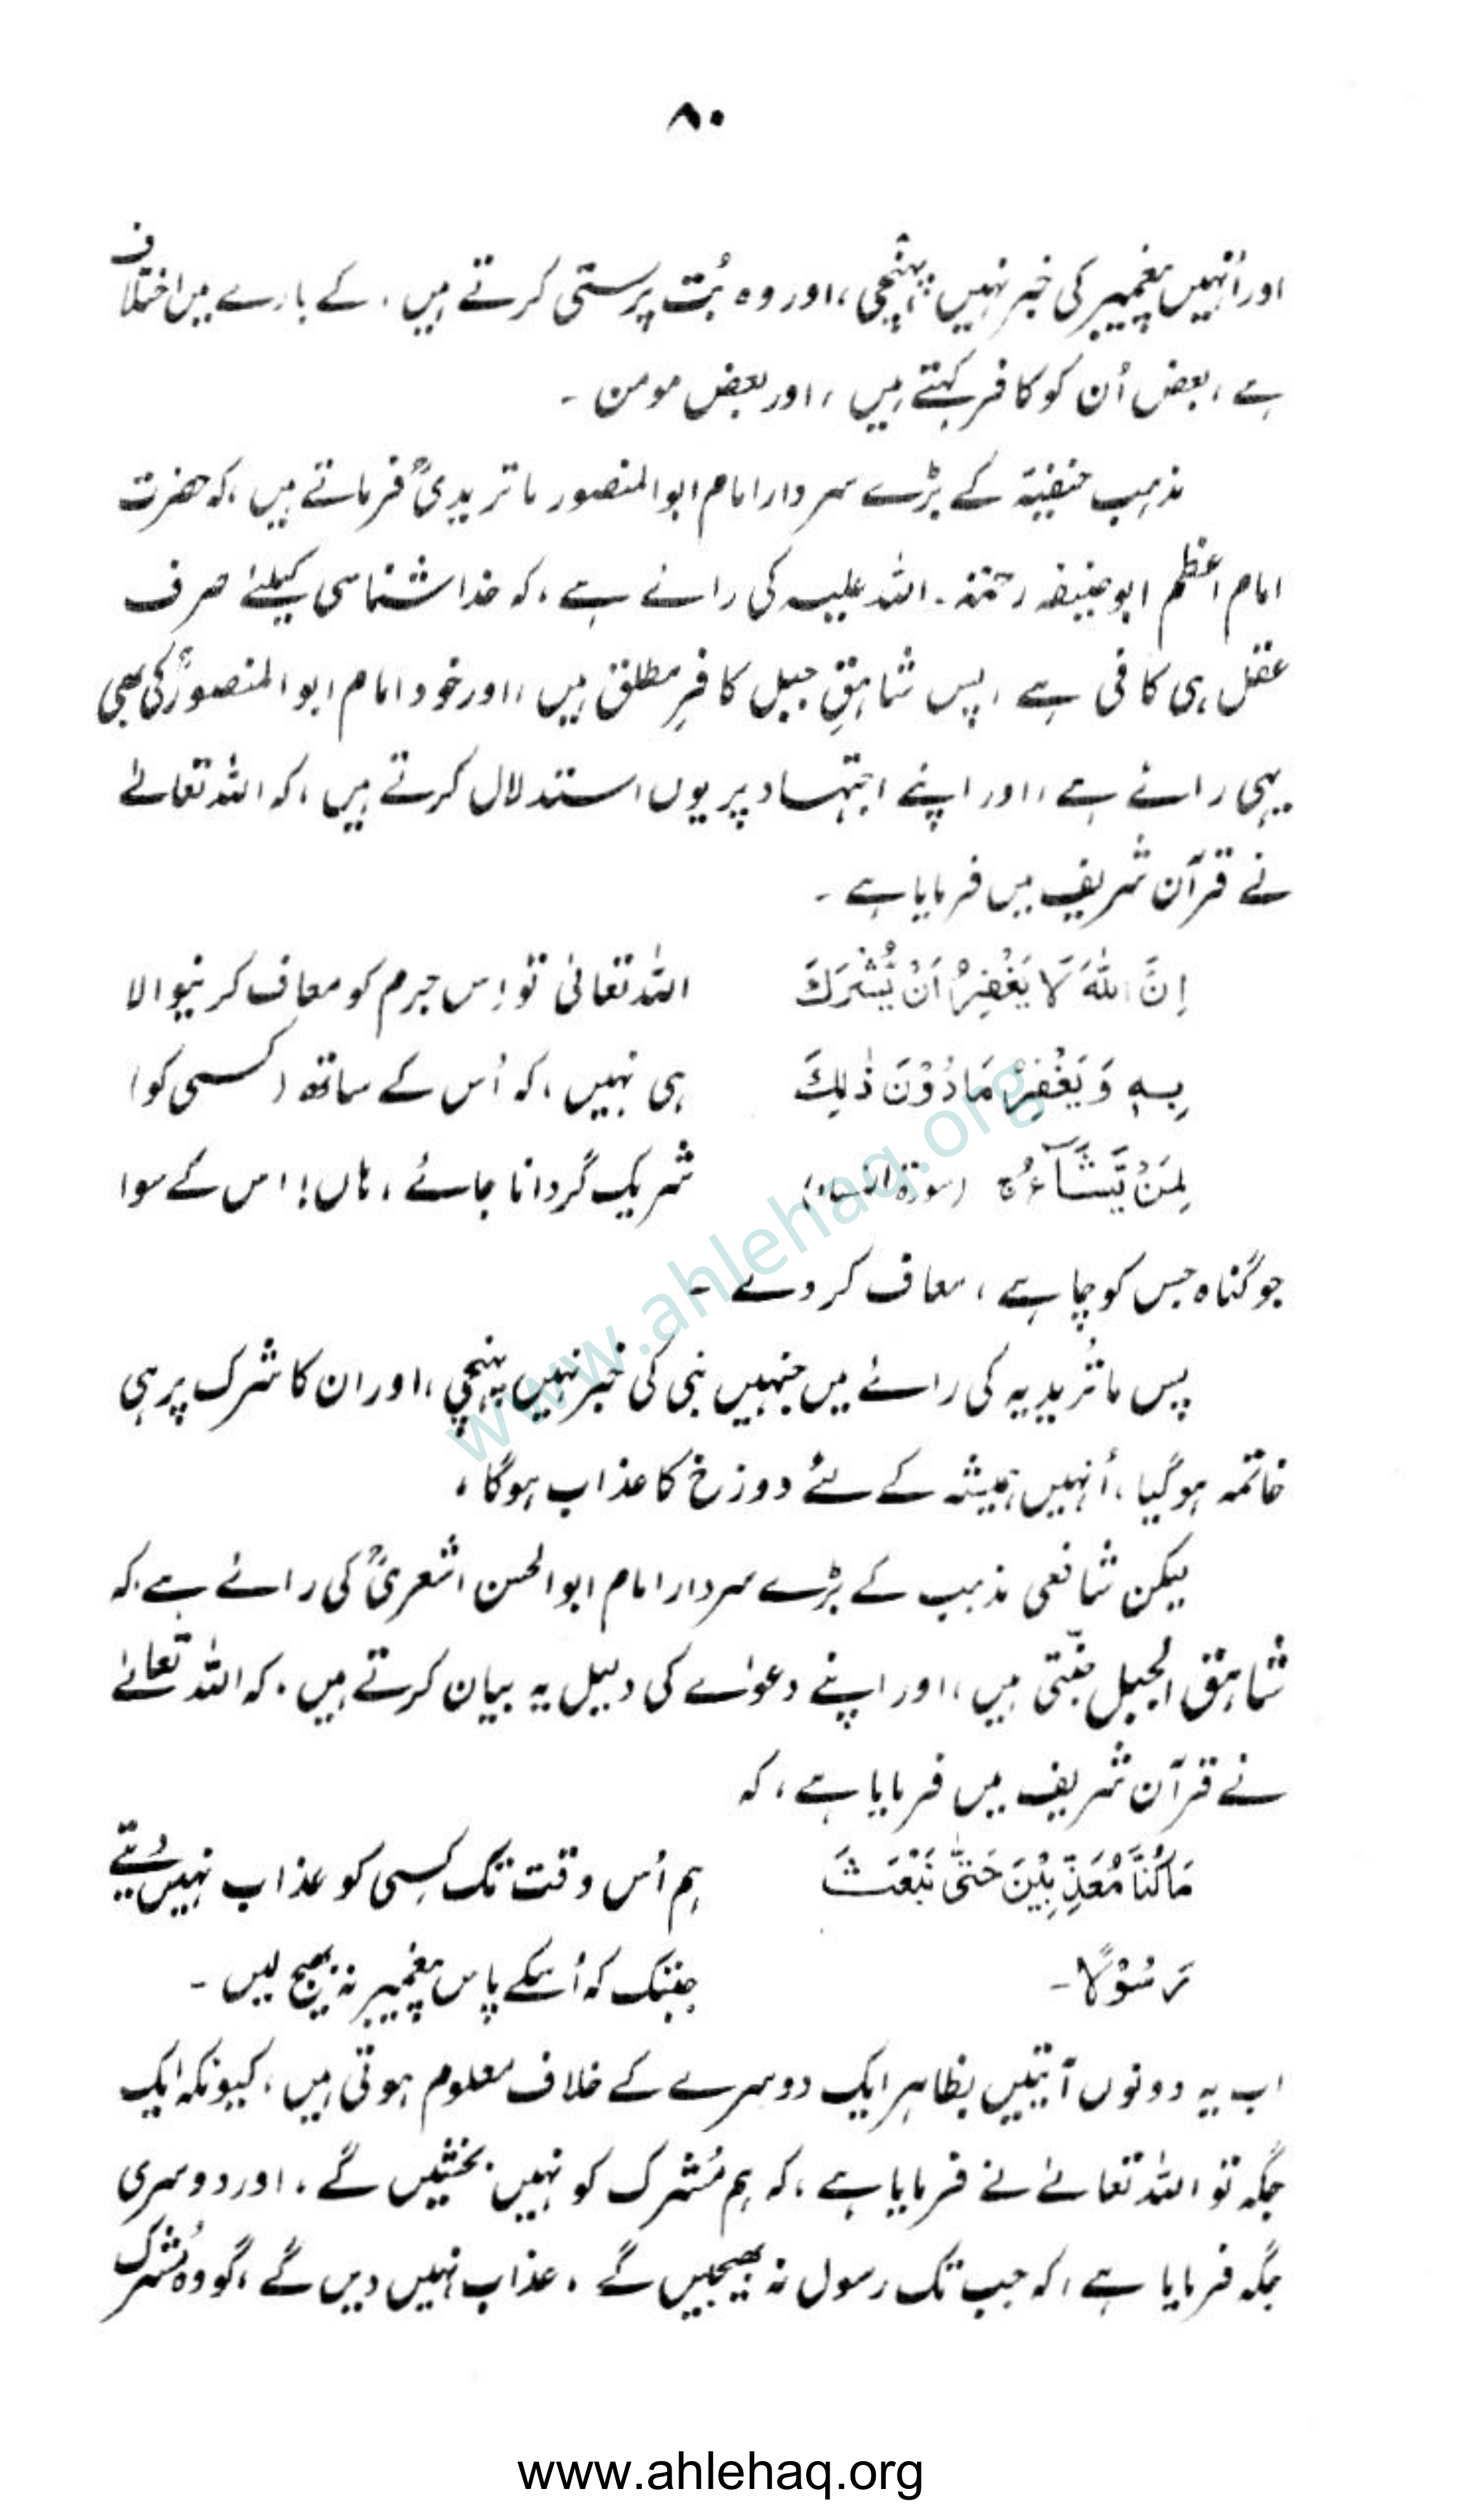 ۸۰
اور اُنہیں پیغمبر کی خبر نہیں پہنچی ، اور وہ بُت پرستی کرتے ہیں ۔ کے بارے میں اختلاف
ہے ، بعض اُن کو کافر کہتے ہیں ، اور بعض مومن ۔
مذہب حنفیّہ کے بڑے سردار امام ابوالمنصور ماتریدیؒ فرماتے ہیں ، کہ حضرت
امام اعظم ابوحنیفہ رحمتہ اللہ علیہ کی رائے ہے ، کہ خداشناسی کیلئے صرف
عقل ہی کافی ہے ، پس شاہقِ جبل کافرِ مطلق ہیں ، اور خود امام ابوالمنصورؒ کی بھی
یہی رائے ہے ، اور اپنے اجتہاد پر یوں استدلال کرتے ہیں ، کہ اللہ تعالےٰ
نے قرآن شریف میں فرمایا ہے ۔
اِنَّ اللّٰهَ لَا يَغْفِرُ اَنْ يُّشْرَكَ اللہ تعالیٰ تو اِس جرم کو معاف کرنیوالا
بِهٖ وَ يَغْفِرُ مَا دُوْنَ ذٰلِكَ ہی نہیں ، کہ اُس کے ساتھ (کسی کو)
لِمَنْ يَّشَآءُ ج (سورۃ النساء) شریک گردانا جائے ، ہاں ! اس کے سوا
جو گناہ جس کو چاہے ، معاف کر دے ۔
پس ماتُریدیہ کی رائے میں جنہیں نبی کی خبر نہیں پہنچی ، اور ان کا شرک پر ہی
خاتمہ ہو گیا ، اُنہیں ہمیشہ کے لئے دوزخ کا عذاب ہوگا ،
لیکن شافعی مذہب کے بڑے سردار امام ابوالحسن اشعریؒ کی رائے ہے کہ
شاہق الجبل جنّتی ہیں ، اور اپنے دعوٰے کی دلیل یہ بیان کرتے ہیں ۔ کہ اللہ تعالےٰ
نے قرآن شریف میں فرمایا ہے ، کہ
مَا كُنَّا مُعَذِّبِيْنَ حَتّٰى نَبْعَثَ ہم اُس وقت تک کِسی کو عذاب نہیں دیتے
رَسُوْلًا ۔ جبتک کہ اُسکے پاس پیغمبر نہ بھیج لیں ۔
اب یہ دونوں آیتیں بظاہر ایک دوسرے کے خلاف معلوم ہوتی ہیں ، کیونکہ ایک
جگہ تو اللہ تعالےٰ نے فرمایا ہے ، کہ ہم مُشرک کو نہیں بخشیں گے ، اور دوسری
جگہ فرمایا ہے ، کہ جب تک رسول نہ بھیجیں گے ، عذاب نہیں دیں گے ، گو وہ مُشرک
www.ahlehaq.org
www.ahlehaq.org